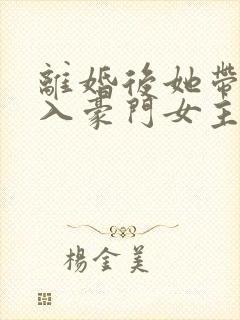 離婚後她帶
入豪門女主
楊金美